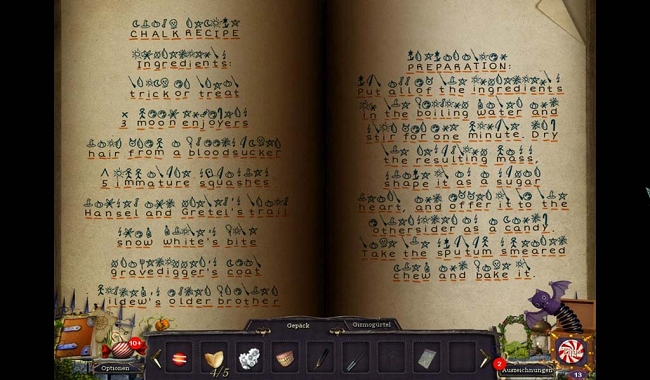 CHALK RECIPE
Ingredients:
trick or treat
3 moon enjoyers
hair from a bloodsucker
5 immature squashes
Hansel and Gretel's trail
snow white's bite
gravedigger's coat
ildew's older brother
PREPARATION:
Put all of the ingredients
in the boiling water and
stir for one minute. Dry
the resulting mass,
shape it as a sugar
heart, and offer it to the
othersider as a candy.
Take the sputum smeared
chew and bake it.
Gepäck
Gizmogürtel
10+
4/5
Optionen
2
Auszeichnungen
13